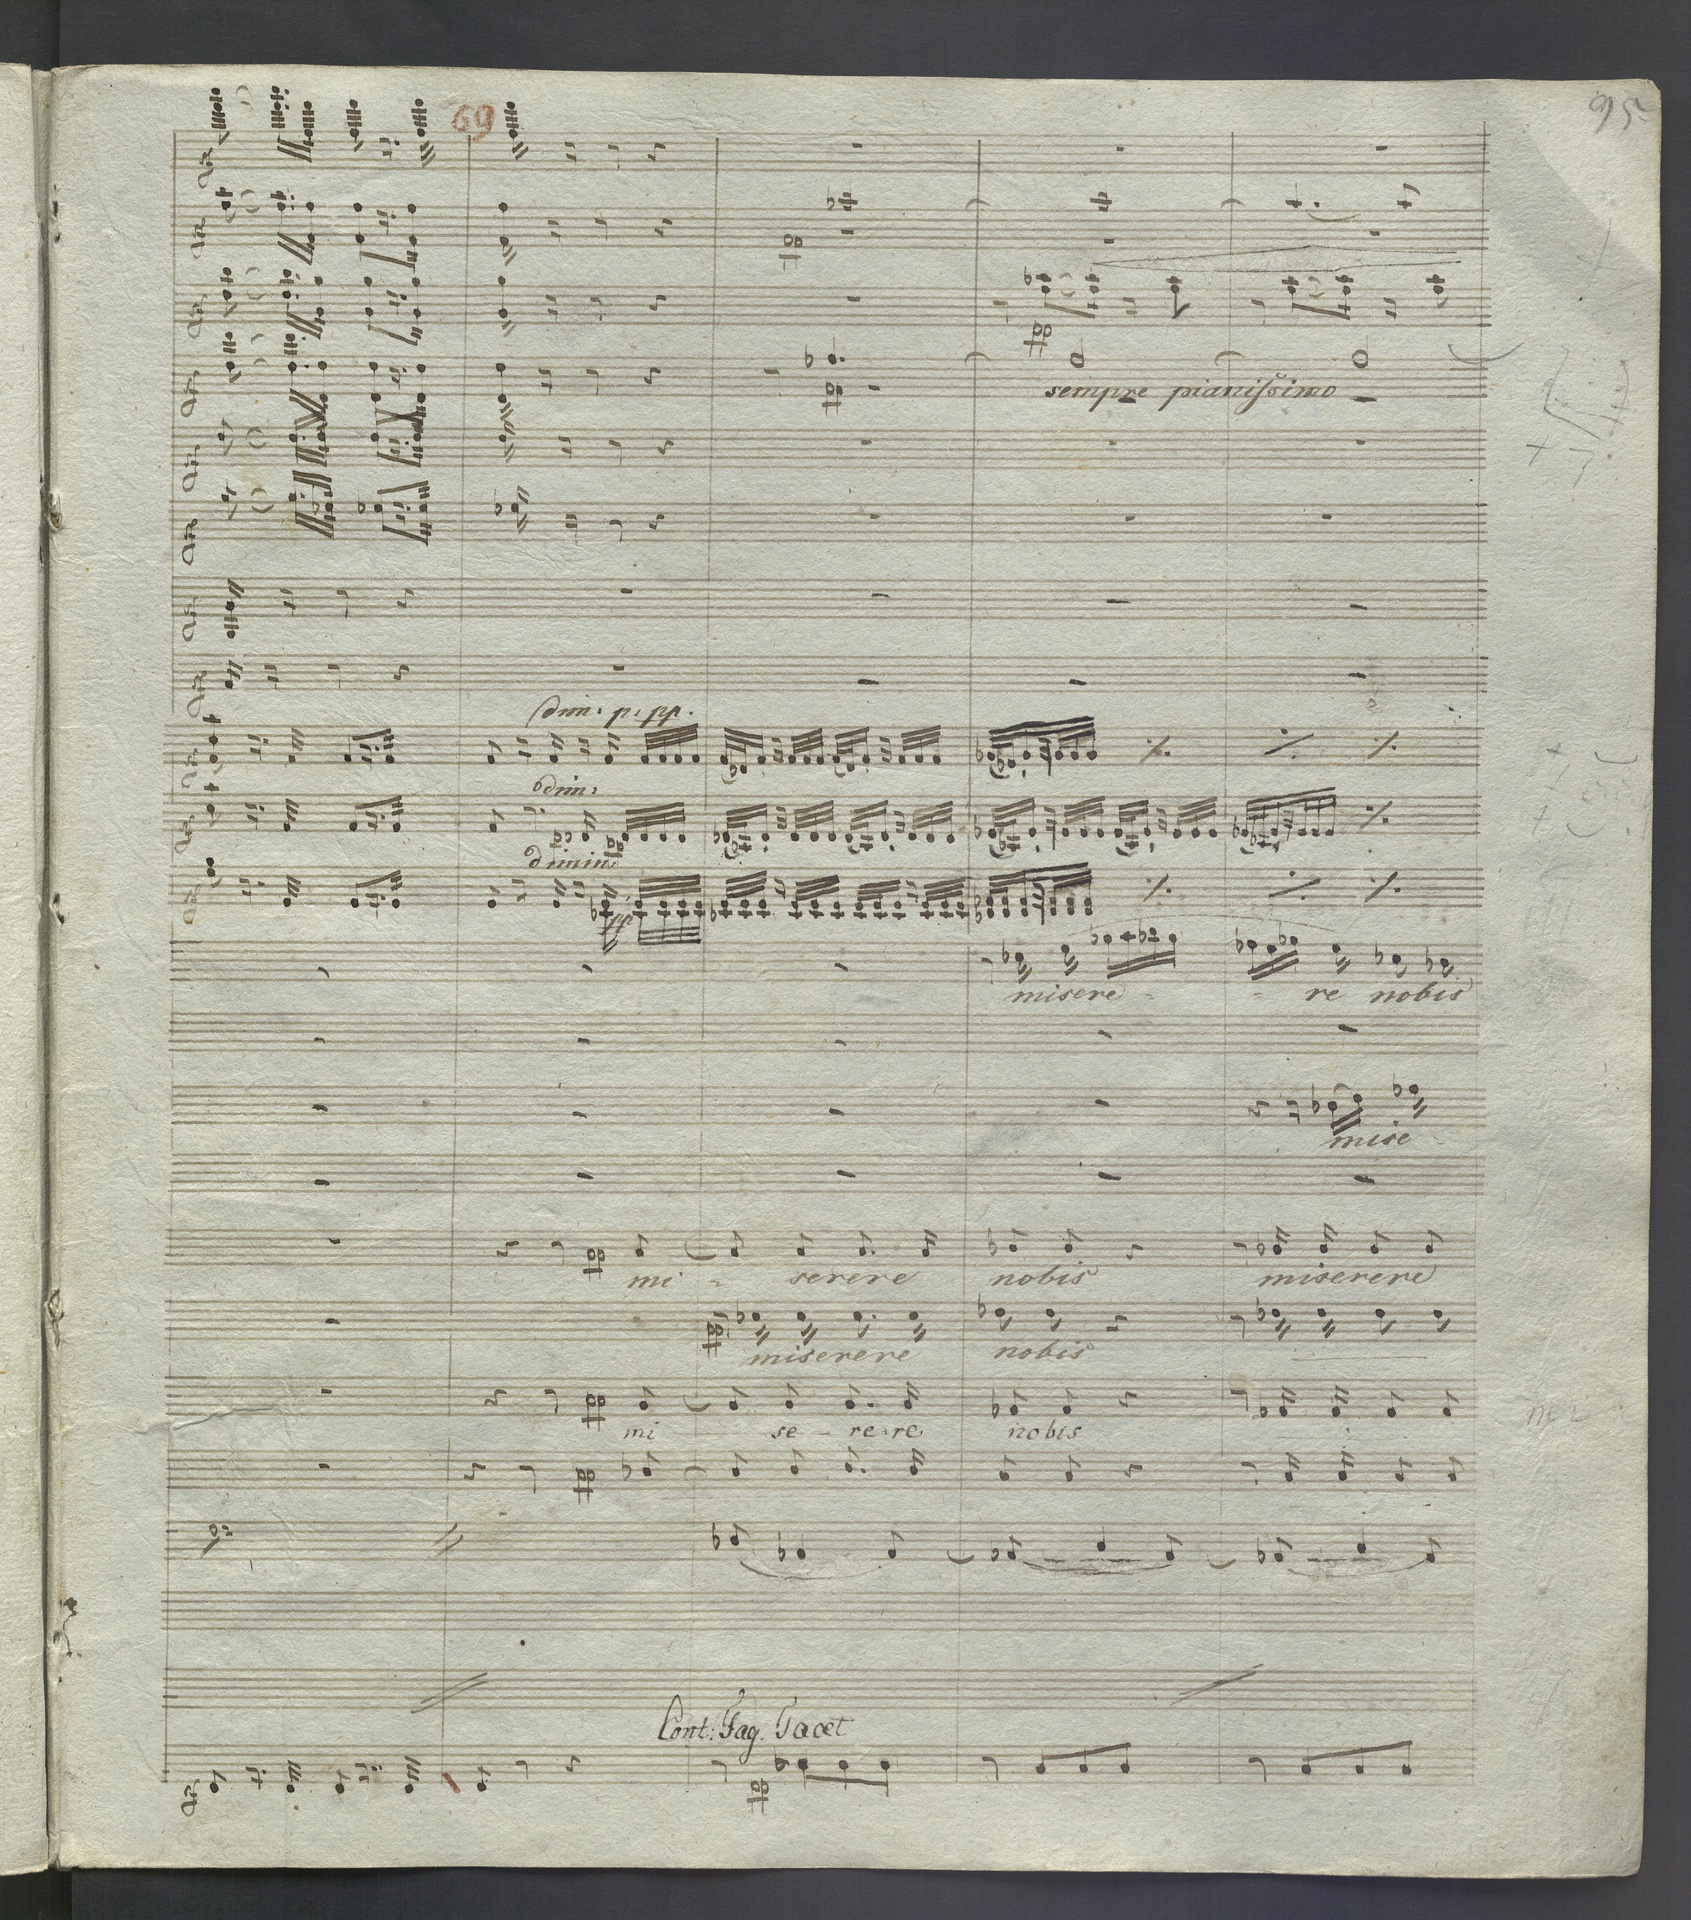 69
95
pp
pp
pp
sempre pianissimo
dim: p: pp.
dim:
pp
dimin:
pp
misere - - re nobis
mise -
pp
mi - serere nobis miserere
pp
miserere nobis
pp
mi se - re re nobis
pp
Cont: Fag. Tacet
pp